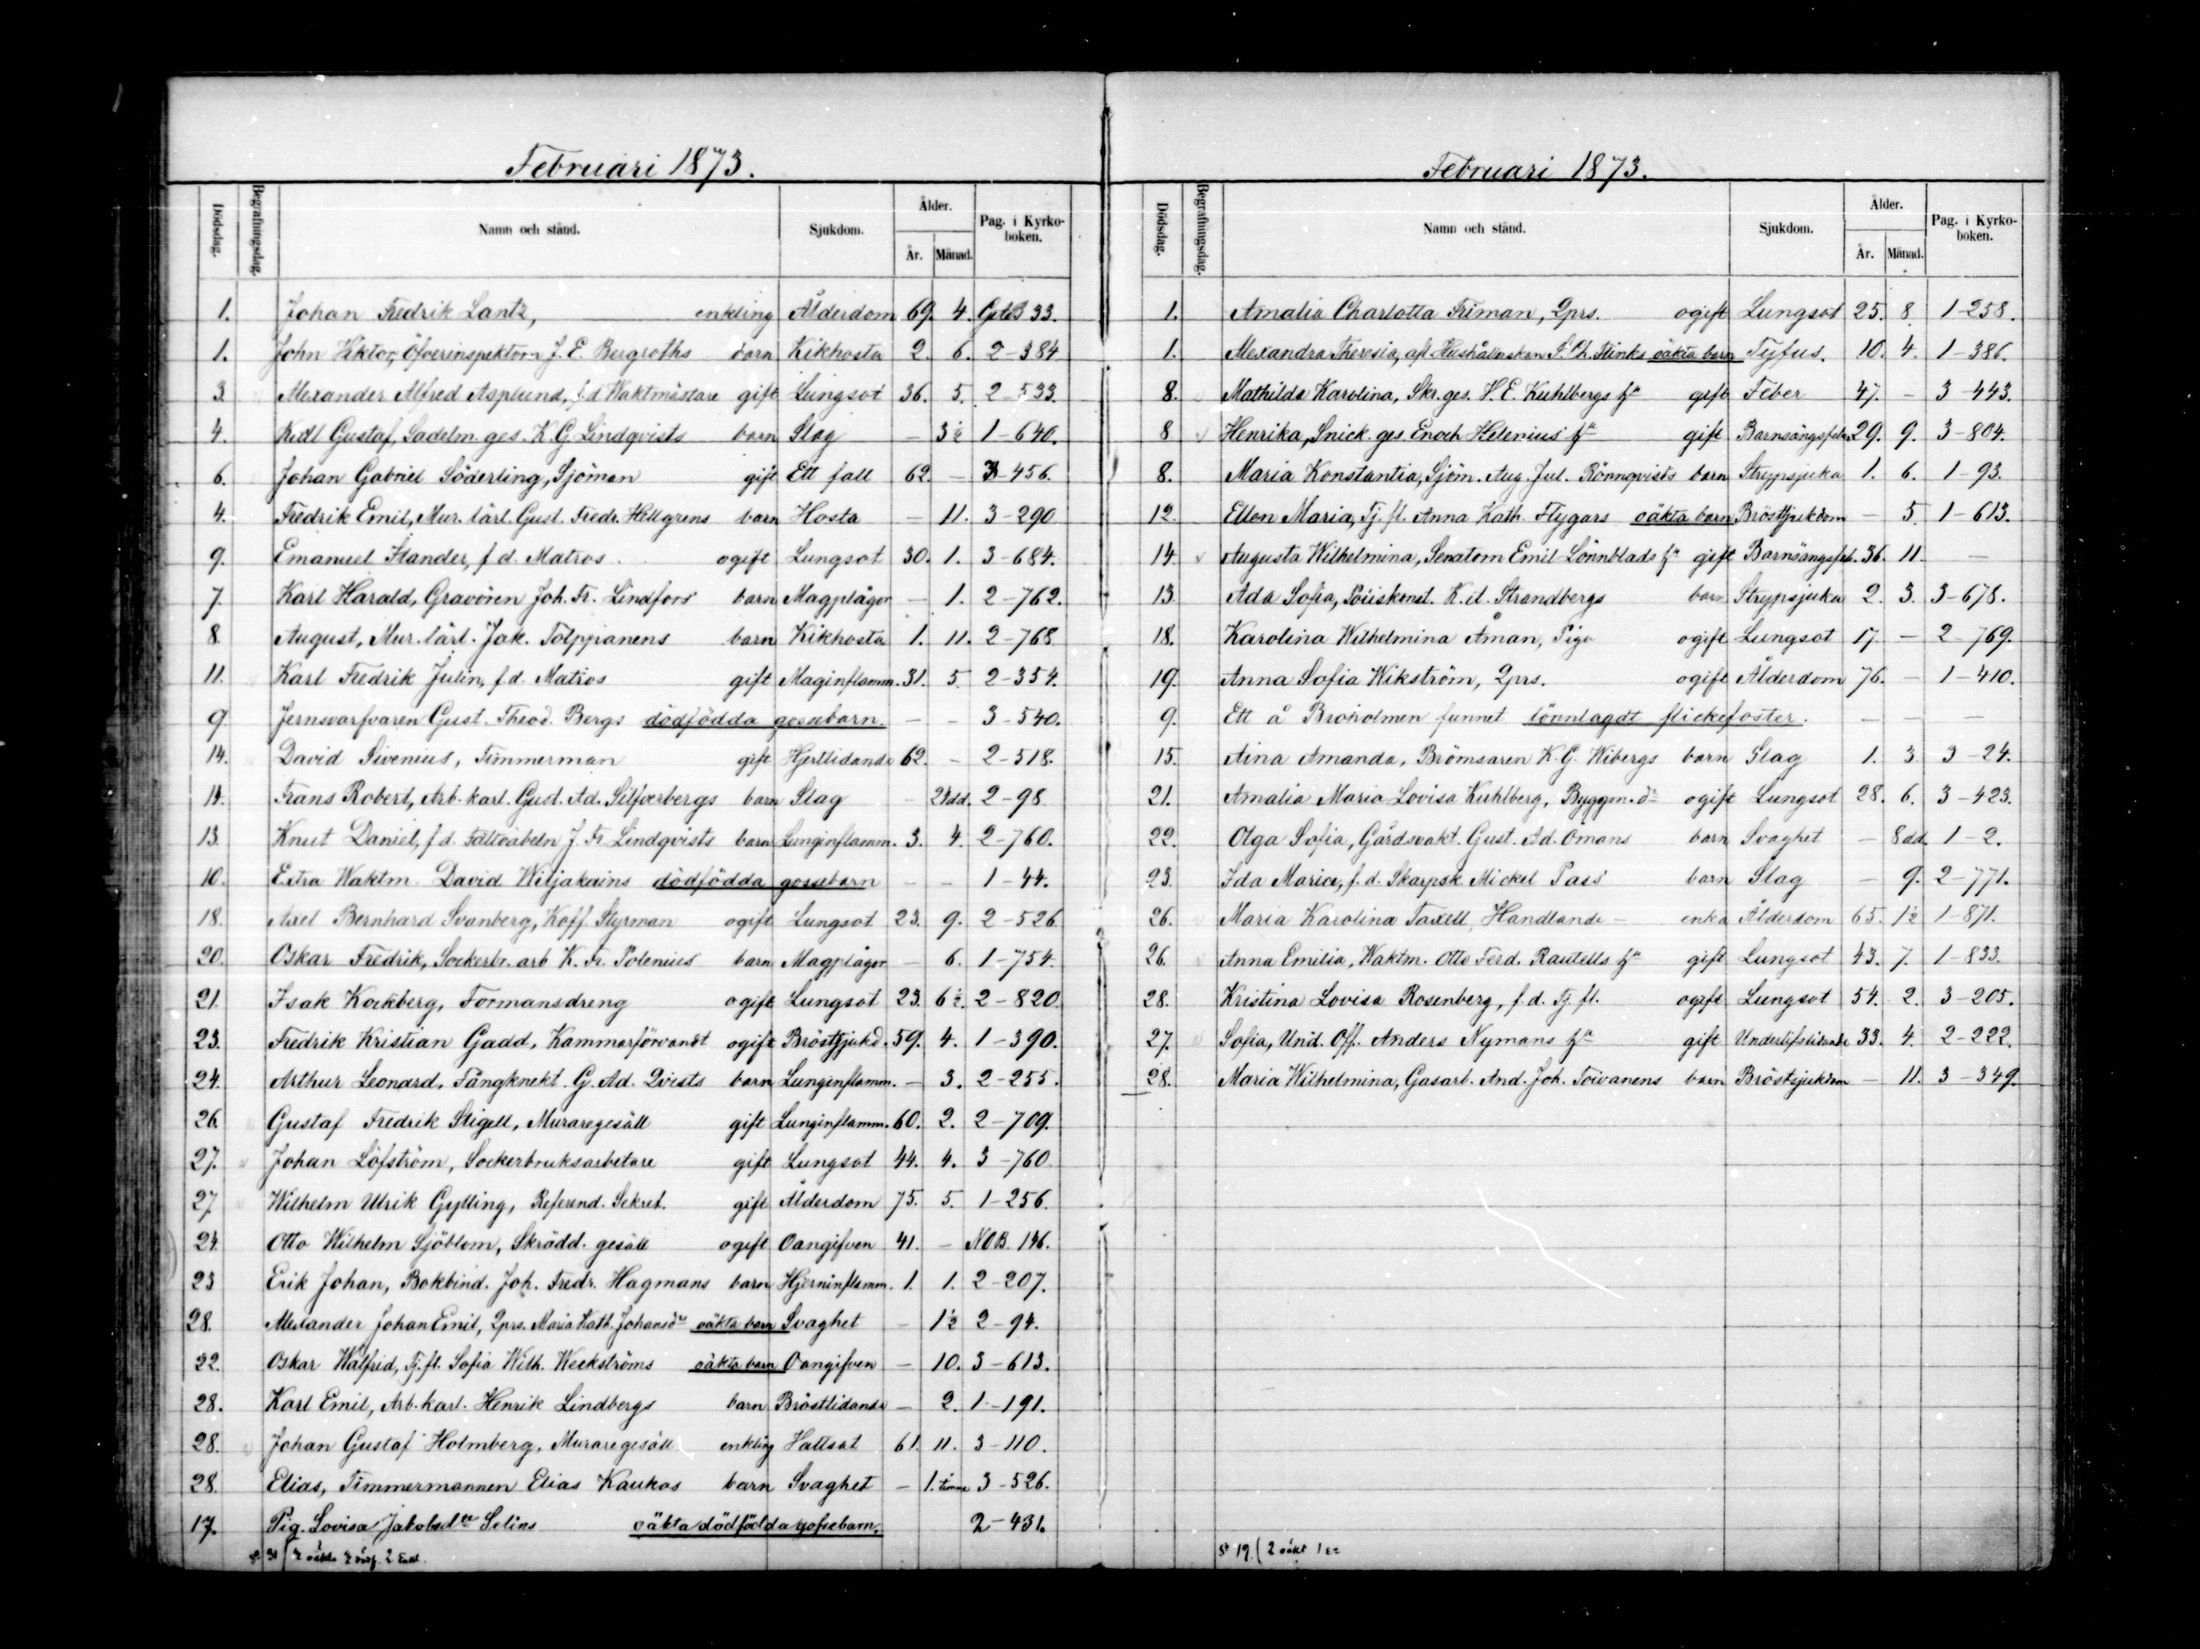 Februari 1873.
Dödsdag. Begrafningsdag. Namn och stånd. Sjukdom. Ålder. År. Månad. Pag. i Kyrko-boken.
1. Johan Fredrik Lantz, enkling Ålderdom 69. 4. 33.
1. John Viktor, Öfverinspektorn J. E. Bergroths barn Kikhosta 2. 6. 2-384
3. Alexander Alfred Asplund, f.d. Waktmästare gift Lungsot 36. 5. 2-533.
4. Gustaf, Sadelm. ges. K. G. Lindqvists barn Slag — 3½ 1-640.
6. Johan Gabriel Söderling, Sjöman gift Ett fall 62. — 3-456.
4. Fredrik Emil, Mur. lärl. Gust. Fredr. Hellgrens barn Hosta — 11. 3-290
9. Emanuel Stander, f.d. Matros. ogift Lungsot 30. 1. 3-684.
7. Karl Harald, Gravören Joh. Fr. Lindfors' barn Magplågor — 1. 2-762.
8. August, Mur. lärl. Jak. Tolppanens barn Kikhosta 1. 11. 2-768
11. Karl Fredrik Julin, f.d. Matros gift Maginflamm. 31. 5. 2-354.
9 Jernsvarfvaren Gust. Theod. Bergs dödfödda gossebarn. — — 3-540.
14. David Sivenius, Timmerman gift Hjertlidande 62. — 2-518.
11. Frans Robert, Arb. karl. Gust. Ad. Silfverbergs barn Slag — 21dd. 2-98
13. Knut Daniel, f.d. J. Fr. Lindqvists barn Lunginflamm. 3. 4. 2-760.
10. Extra Waktm. David Wiljakains dödfödda gossebarn — — 1-44.
18. Axel Bernhard Svanberg, Koff. Styrman ogift Lungsot 23. 9. 2-526
20. Oskar Fredrik, Sockerbr. arb K. Fr. Polenius' barn Magplågor — 6. 1-754.
21. Isak Kockberg, Formansdreng ogift Lungsot 23. 6½ 2-820
23. Fredrik Kristian Gadd, Kammarförvandt ogift Bröstsjukd. 59. 4. 1-390.
24. Arthur Leonard, Fångknekt. G. Ad. Qvists barn Lunginflamm. — 3. 2-255.
26. Gustaf Fredrik Stigell, Muraregesäll gift Lunginflamm. 60. 2. 2-709.
27. Johan Löfström, Sockerbruksarbetare gift Lungsot 44. 4. 3-760
27 Wilhelm Ulrik Gylling, Referend. Sekret. gift Ålderdom 75. 5. 1-256.
24. Otto Wilhelm Sjöblom, Skrädd. gesäll ogift Oangifven 41. — NOB. 146.
23 Erik Johan, Bokbind. Joh. Fredr. Hagmans barn Hjerninflamm. 1. 1. 2-207.
28. Alexander Johan Emil, Qprs. Maria Kath. Johansdr oäkta barn Svaghet — 1½ 2-94.
22. Oskar Walfrid, Tj. fl. Sofia Wilh. Weckströms oäkta barn Oangifven — 10. 3-613.
28. Karl Emil, Arb. karl. Henrik Lindbergs barn Bröstlidande — 2. 1-191.
28. Johan Gustaf Holmberg, Muraregesäll enkling Vattsot 61. 11. 3-110.
28. Elias, Timmermannen Elias Kaukas barn Svaghet — 1. timme 3-526.
17. Pig. Lovisa Jakobsdr Selins oäkta dödfödda gossebarn. 2-431.
Februari 1873.
Dödsdag. Begrafningsdag. Namn och stånd. Sjukdom. Ålder. År. Månad. Pag. i Kyrko-boken.
1. Amalia Charlotta Friman, Qprs. ogift Lungsot 25. 8. 1-258.
1. Alexandra Theresia, afl. Hushållerskan Flinks oäkta barn Tyfus. 10. 4. 1-386.
8. Mathilda Karolina, Skr. ges. V. E. Kuhlbergs hu gift Feber 47. — 3-443.
8 Henrika, Snick. ges. Enoch Helenius' hu gift Barnsängsfeber 29. 9. 3-804.
8. Maria Konstantia, Sjöm. Aug. Jul. Rönnqvists barn Strypsjuka 1. 6. 1-93.
12. Ellen Maria, Tj. fl. Anna Kath. Flygars oäkta barn Bröstsjukdom — 5. 1-613.
14. Augusta Wilhelmina, Senatorn Emil Lönnblads hu gift Barnsängsfeb. 36. 11. —
13. Ada Sofia, Poliskonst. K. Strandbergs barn Strypsjuka 2. 3. 3-678.
18. Karolina Wilhelmina Åman, Piga ogift Lungsot 17. — 2-769.
19. Anna Sofia Wikström, Qprs. ogift Ålderdom 76. — 1-410.
9. Ett å Broholmen funnet lönnlagdt flickefoster. — — —
15. Aina Amanda, Brömsaren K. G. Wibergs barn Slag 1. 3. 3-24.
21. Amalia Maria Lovisa Kuhlberg, Byggm. dr ogift Lungsot 28. 6. 3-423.
22. Olga Sofia, Gårdsvakt. Gust. Ad. Omans barn Svaghet — 8 dd. 1-2.
23. Ida Maria, f.d. Skarpsk. Mickel Pass' barn Slag — 9. 2-771.
26. Maria Karolina Taxell, Handlande — enka Ålderdom 65. 1½ 1-871.
26. Anna Emilia, Waktm. Otto Ferd. Rautells hu gift Lungsot 43. 7. 1-833.
28. Kristina Lovisa Rosenberg, f.d. Tj. fl. ogift Lungsot 54. 2. 3-205.
27. Sofia, Und. Off. Anders Nymans hu gift Underlifslidande 33. 4. 2-222.
28. Maria Wilhelmina, Gasarb. And. Joh. Toivanens barn Bröstsjukdom — 11. 3-349.
19. ( 2 oäkt 1